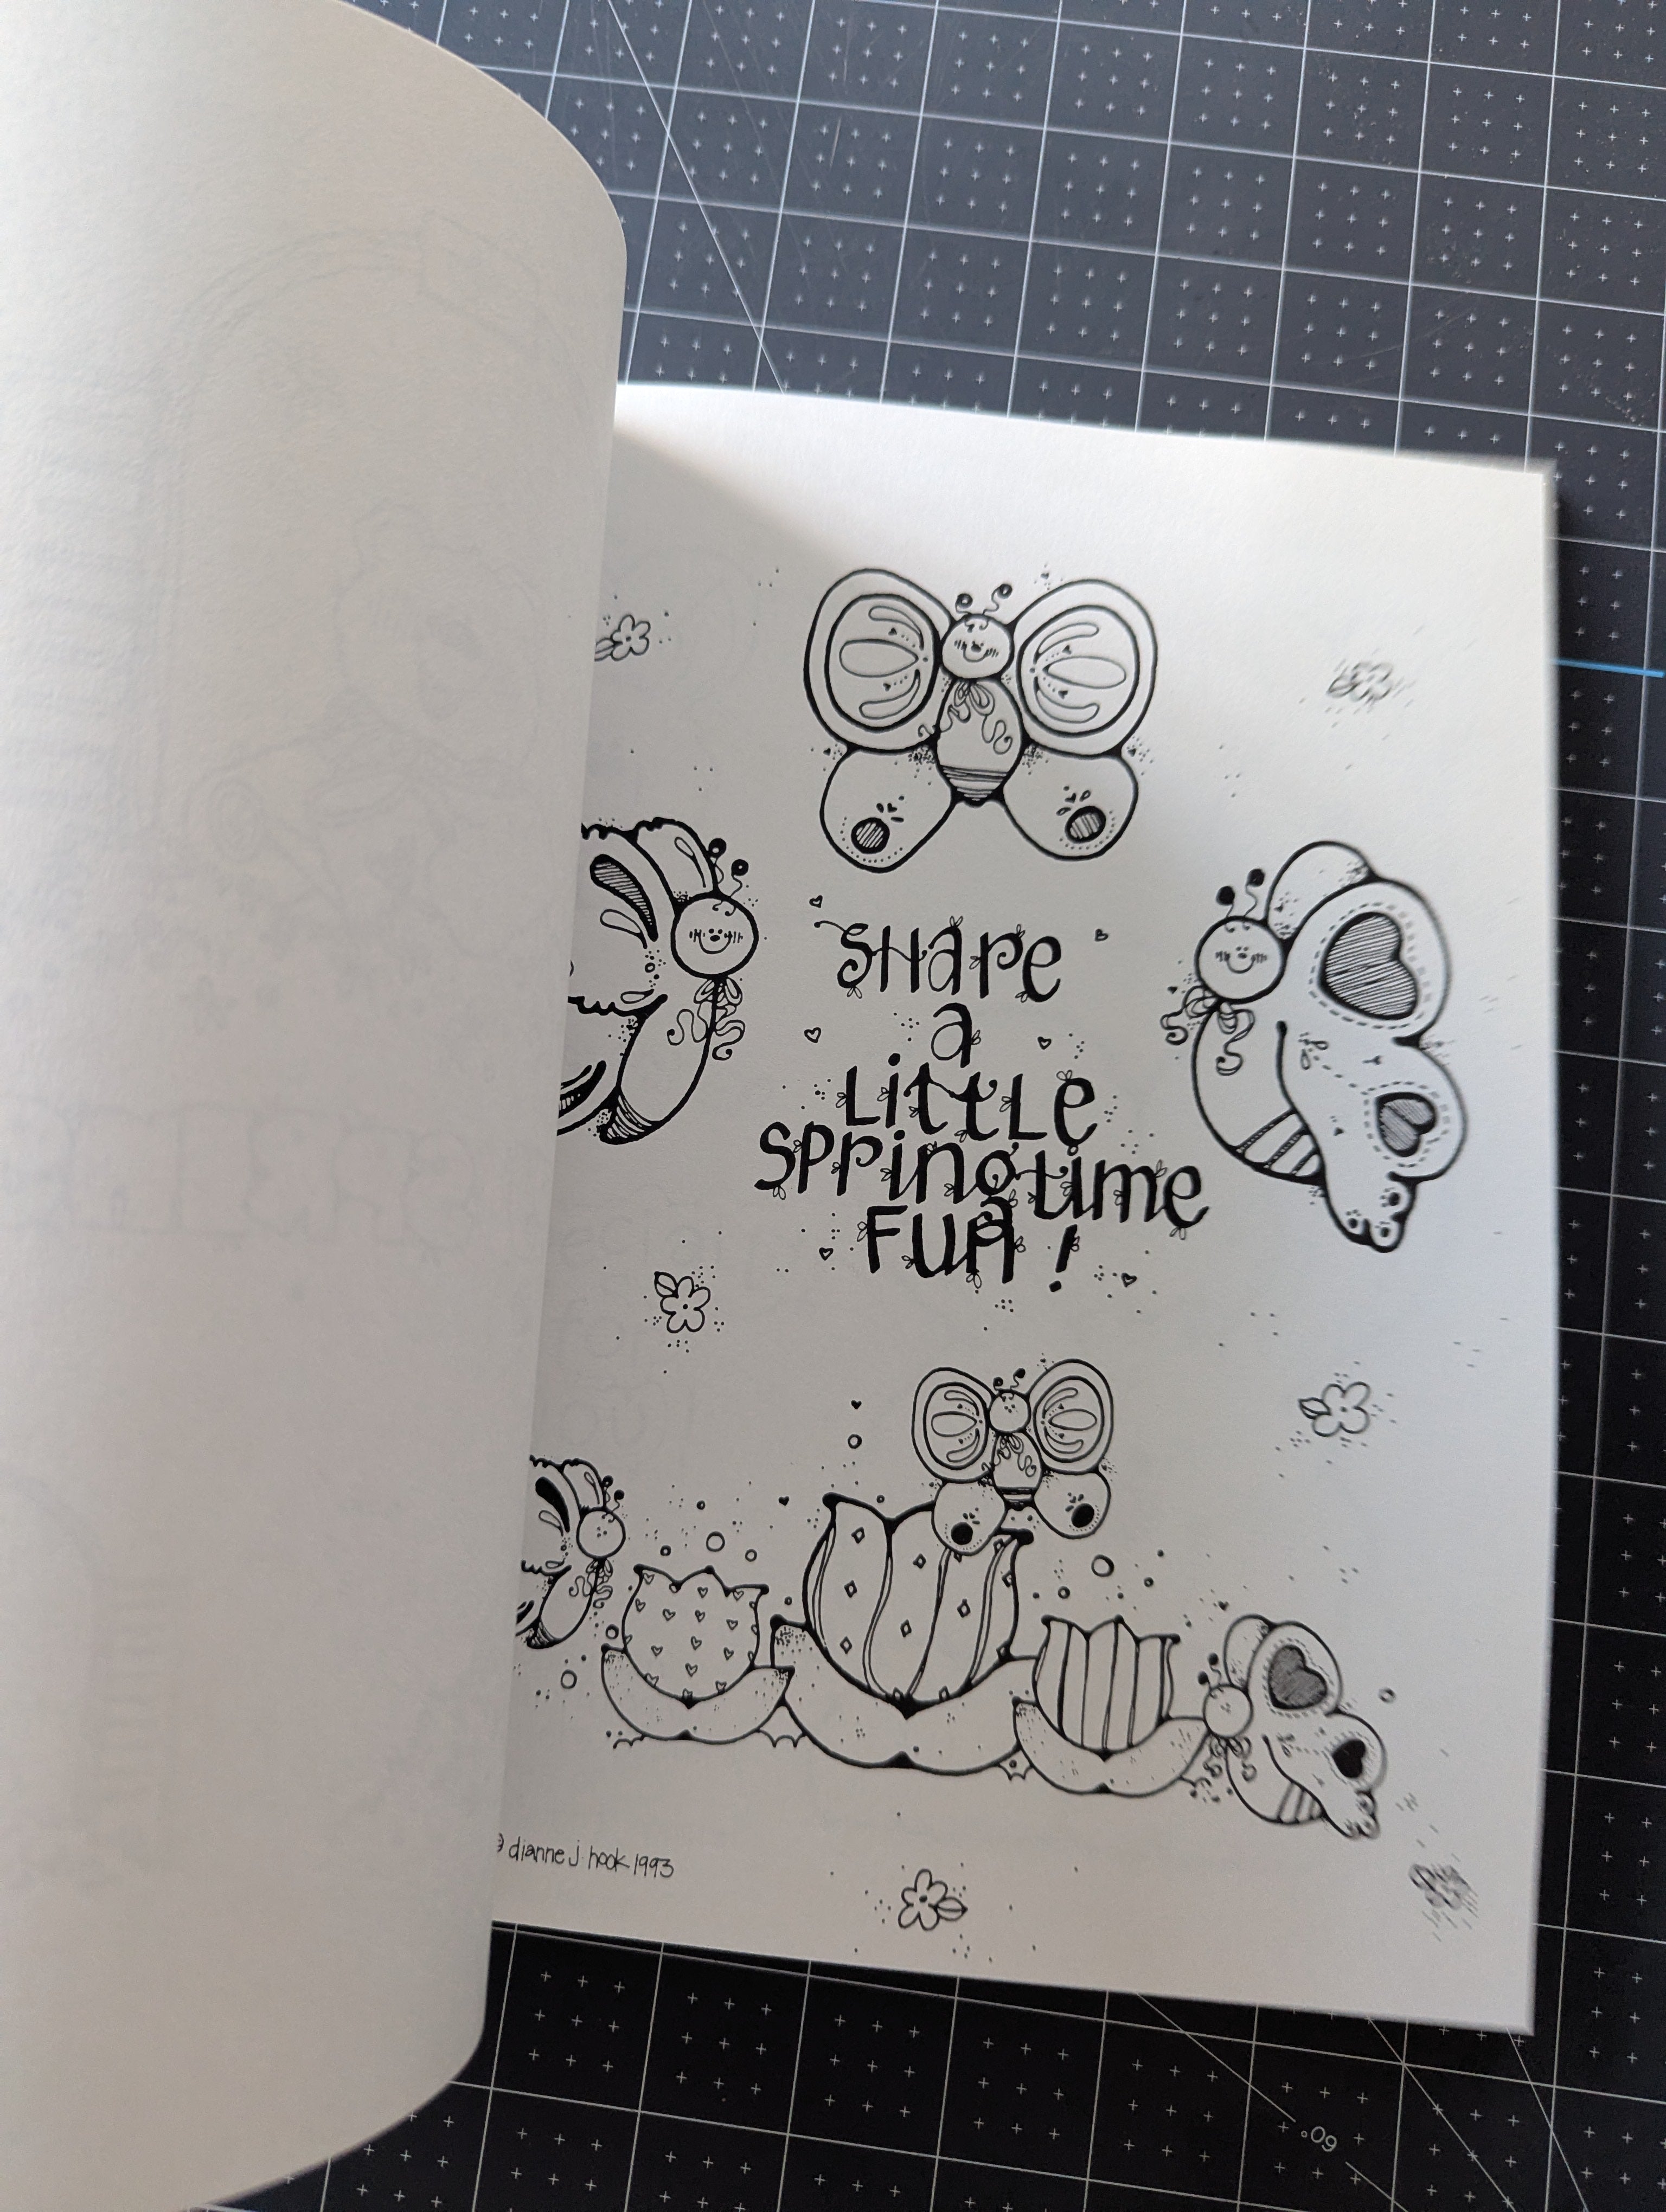 SHare
a
LittLe
SPringtime
FUn!
© dianne j hook 1993
60°